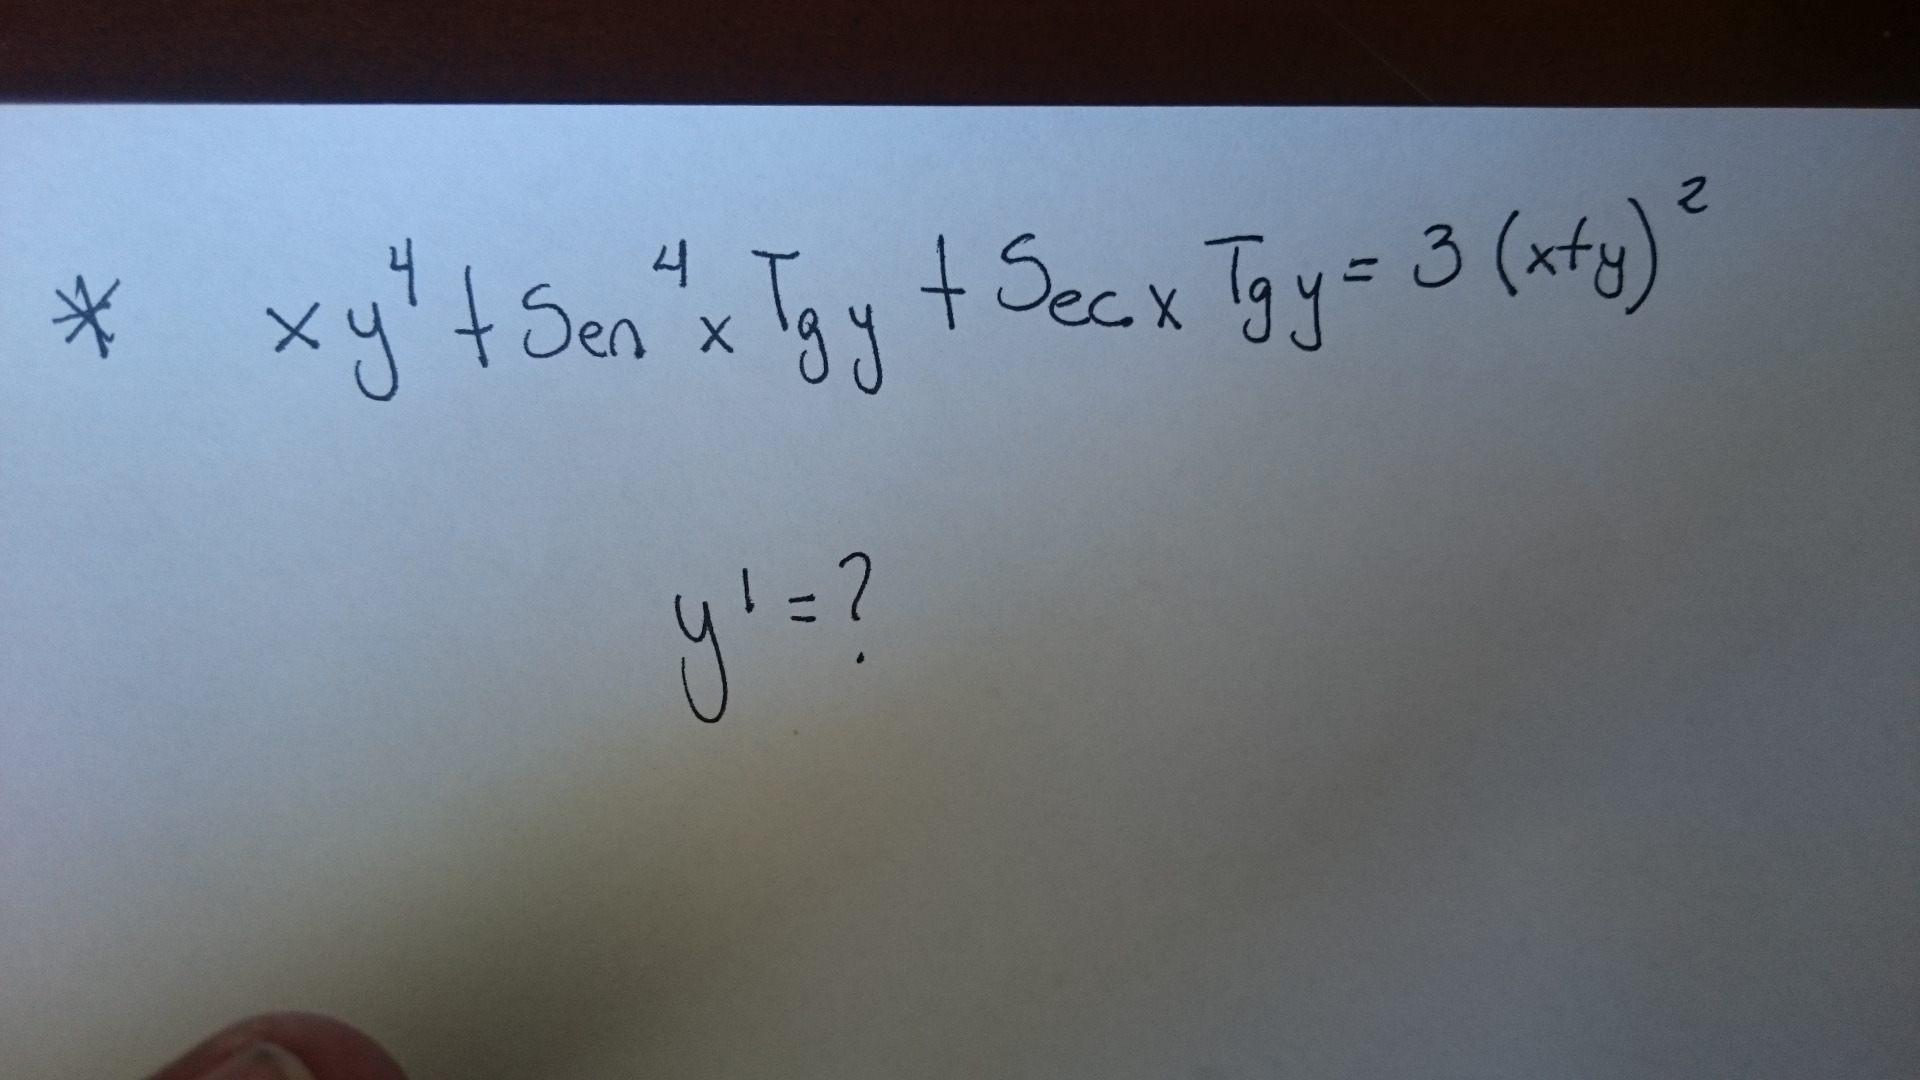 * xy⁴ + Sen⁴x Tgy + Secx Tgy = 3(x+y)²
y' = ?